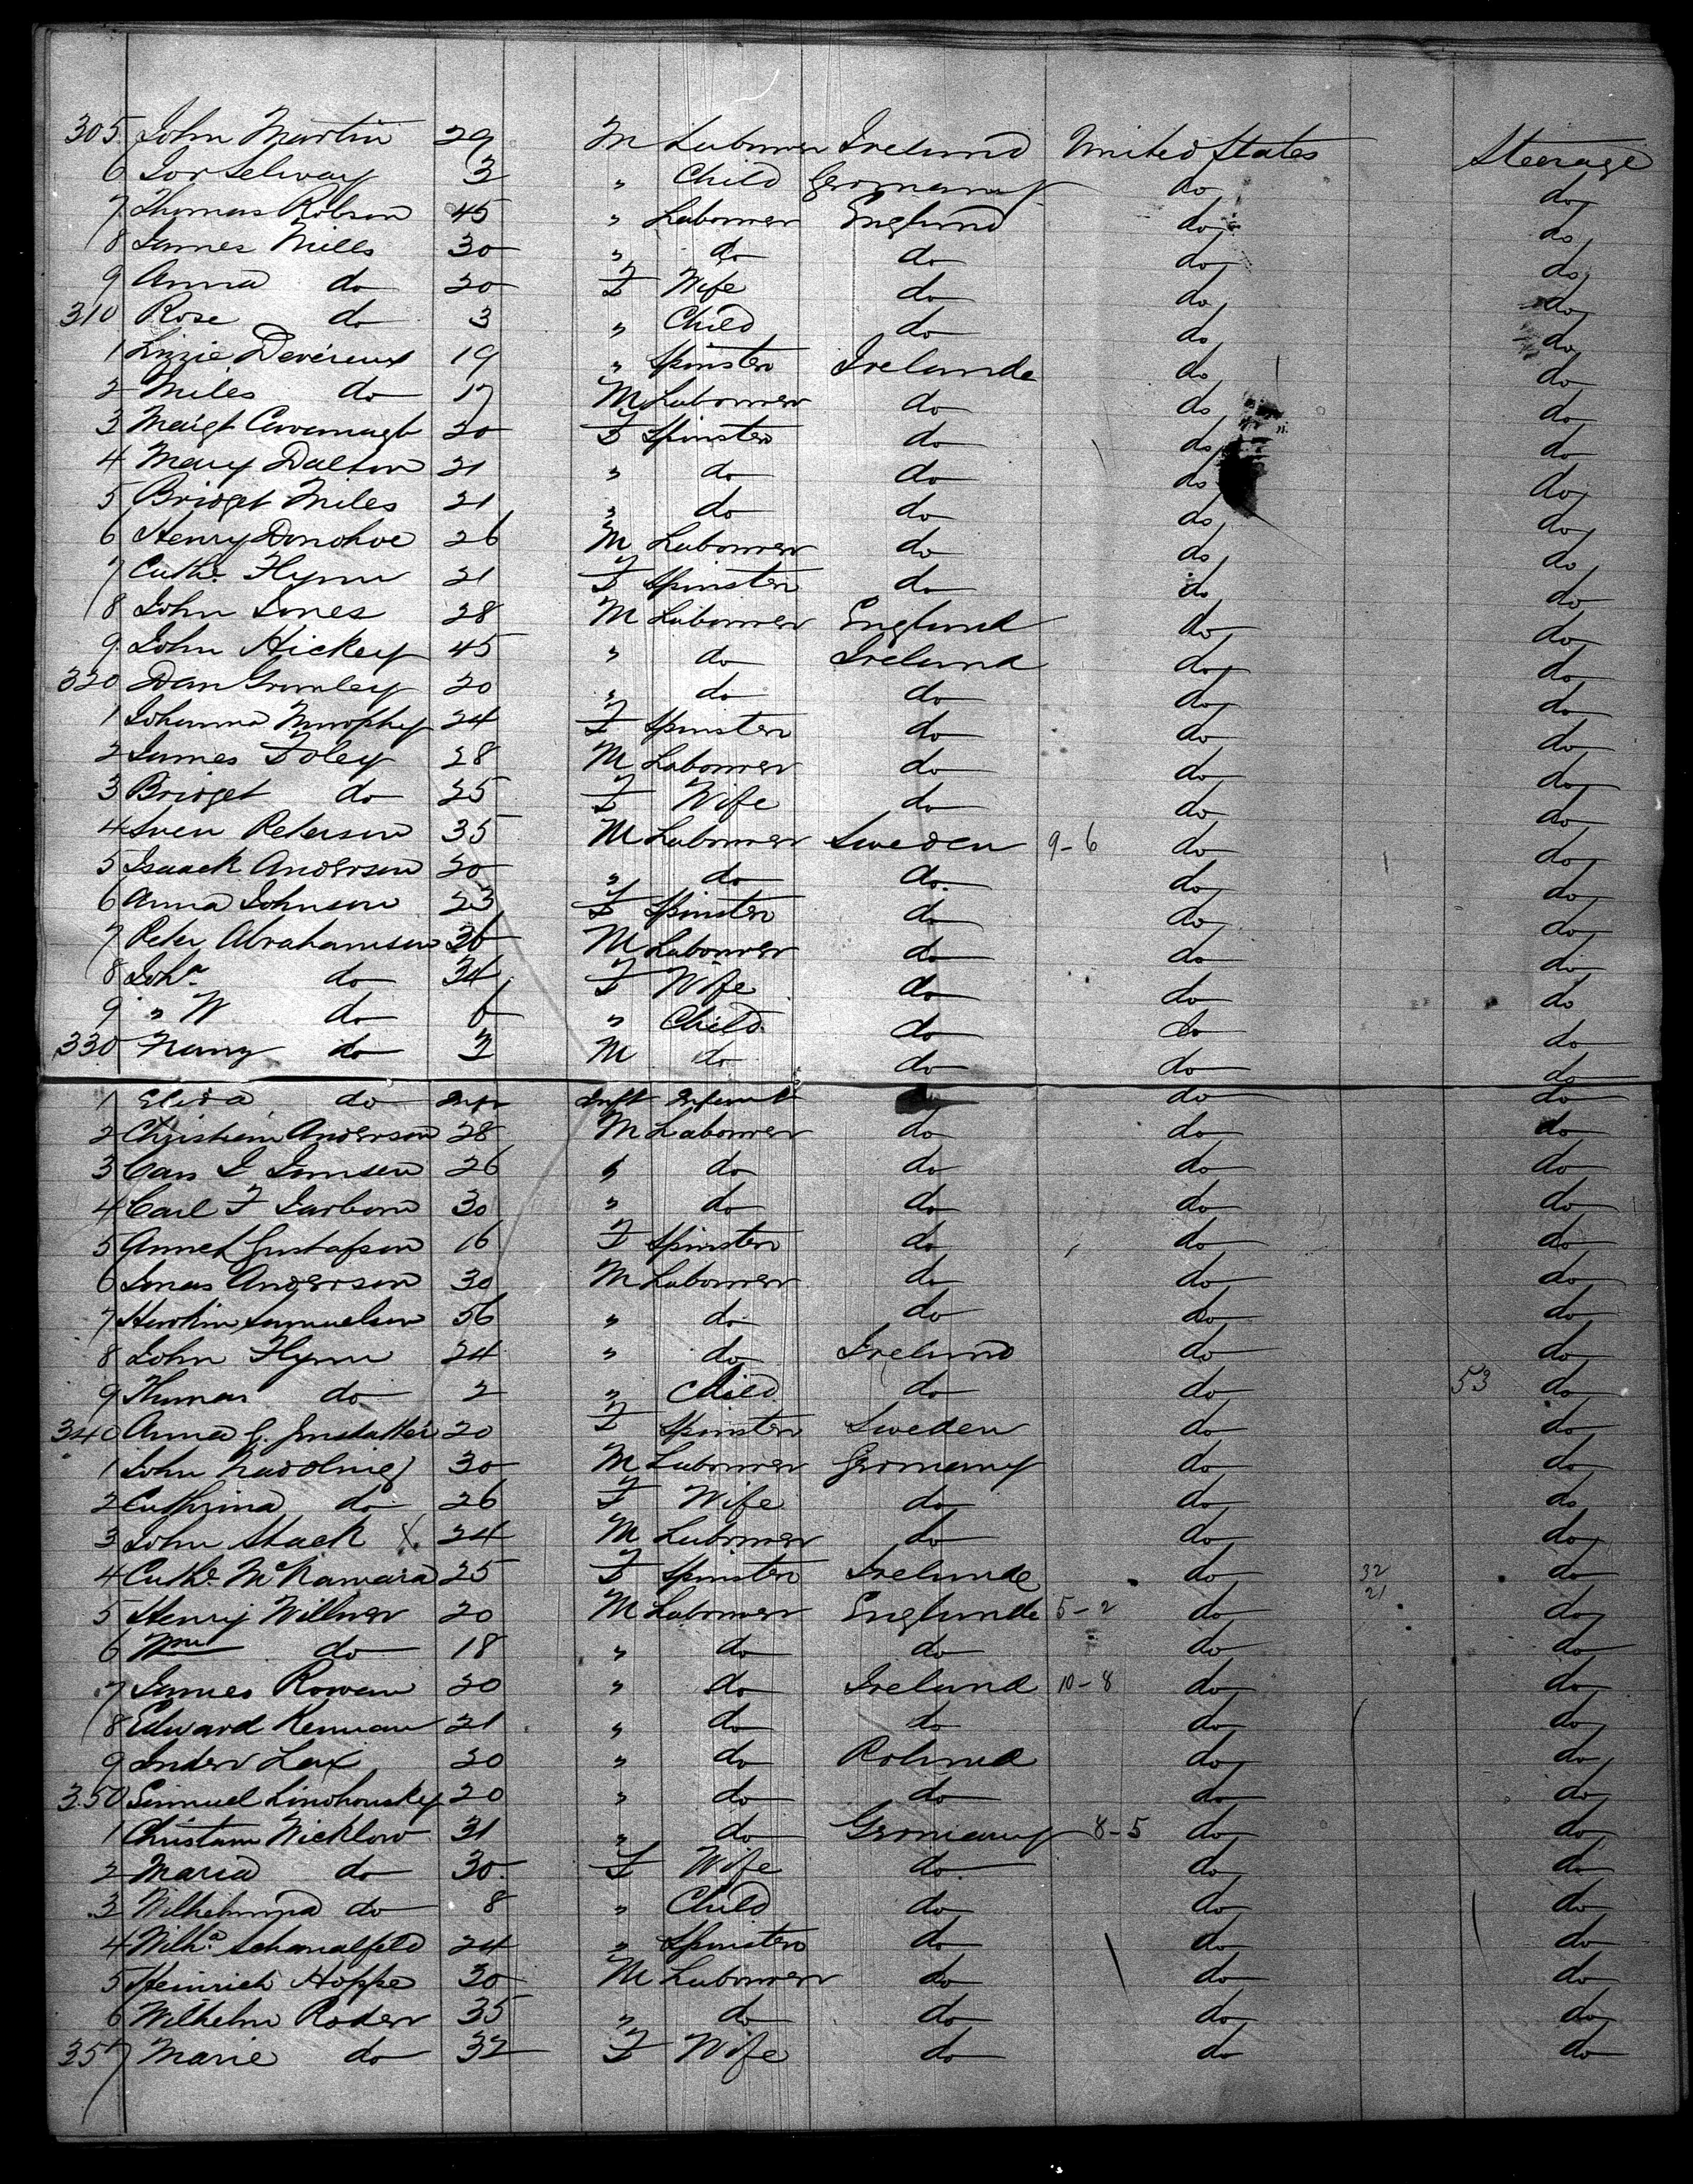 305 John Martin 29 M Labourer Ireland United States Steerage
6 Selway 3 " Child Germany do do
7 Thomas Robson 45 " Labourer England do do
8 James Mills 30 " do do do do
9 Anna do 20 F Wife do do do
310 Rose do 3 " Child do do do
1 Lizzie Devereux 19 " Spinster Ireland do do
2 Miles do 17 M Labourer do do do
3 Margt Cavanagh 20 F Spinster do do do
4 Mary Dalton 21 " do do do do
5 Bridget Miles 21 " do do do do
6 Henry Donohoe 26 M Labourer do do do
7 Cathe Flynn 21 F Spinster do do do
8 John Jones 28 M Labourer England do do
9 John Hickey 45 " do Ireland do do
320 Dan Gromley 20 " do do do do
1 Johanna Murphy 24 F Spinster do do do
2 James Foley 28 M Labourer do do do
3 Bridget do 25 F Wife do do do
4 Sven Peterson 35 M Labourer Sweden 9-6 do do
5 Isaack Anderson 20 " do do do do
6 Anna Johnson 23 F Spinster do do do
7 Peter Abrahamsen 36 M Labourer do do do
8 Joha do 34 F Wife do do do
9 " W do 6 " Child do do do
330 do 3 M do do do do
1 do Inft Infant do do
2 Christian Anderson 28 M Labourer do do do
3 26 " do do do do
4 Carl F 30 " do do do do
5 Gustafson 16 F Spinster do do do
6 Jonas Anderson 30 M Labourer do do do
7 Samuelsen 56 " do do do do
8 John Flynn 24 " do Ireland do do
9 Thomas do 2 " Child do do 53 do
340 Anna G. 20 F Spinster Sweden do do
1 John 30 M Labourer Germany do do
2 Cathrina do 26 F Wife do do do
3 John Stack X 24 M Labourer do do do
4 Cathe McNamara 25 F Spinster Ireland do 32 21 do
5 Henry Willner 20 M Labourer England 5-2 do do
6 Wm do 18 " do do do do
7 James Rowan 20 " do Ireland 10-8 do do
8 Edward Kernan 21 " do do do do
9 Lax 20 " do Poland do do
350 Samuel Lindhousky 20 " do do do do
1 Christian Wicklow 31 " do Germany 8-5 do do
2 Maria do 30 F Wife do do do
3 Wilhelmina do 8 " Child do do do
4 Wilha Schanalfeld 24 " Spinster do do do
5 Heinrich Hoppe 30 M Labourer do do do
6 Wilhelm Roder 35 " do do do do
357 Marie do 32 F Wife do do do